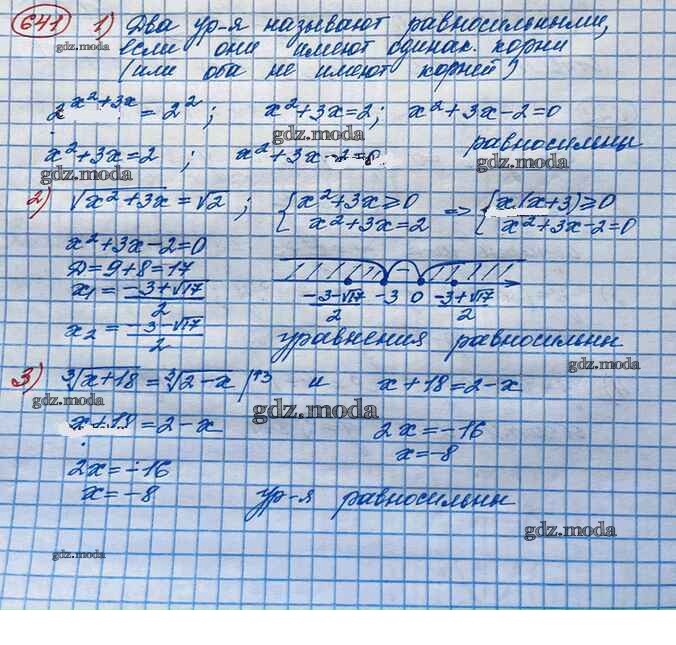 641 1) Два ур-я называют равносильными,
gdz.moda
если они имеют одинак. корни
(или оба не имеют корней)
2^{x²+3x} = 2²; x²+3x=2; x²+3x-2=0
gdz.moda
равносильны
x²+3x=2; x²+3x-2=0
gdz.moda gdz.moda gdz.moda
2) √x²+3x = √2; {x²+3x≥0 => {x(x+3)≥0
x²+3x=2 x²+3x-2=0
x²+3x-2=0
Д=9+8=17
x₁ = (-3+√17)/2
(-3-√17)/2 -3 0 (-3+√17)/2
x₂ = (-3-√17)/2
уравнения равносильны
gdz.moda
3) ∛x+18 = ∛2-x |↑3 и x+18=2-x
gdz.moda gdz.moda
x+18=2-x 2x=-16
x=-8
2x=-16
x=-8 ур-я равносильны
gdz.moda
gdz.moda